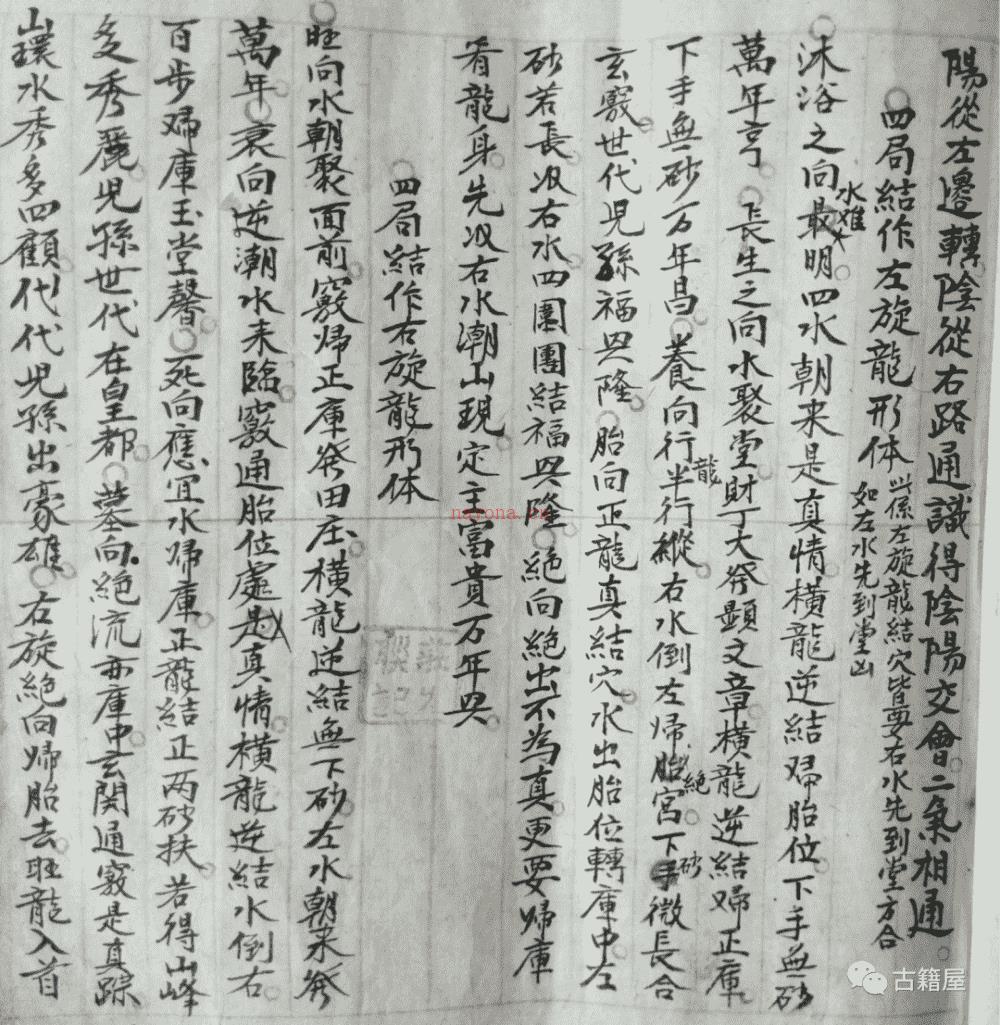 陽從左邊轉陰從右路通識得陰陽交會二氣相通
四局結作左旋龍形体 此係左旋龍結穴皆要右水先到堂方合
如左水先到堂凶
沐浴之向最明四水朝来是真情橫龍逆結歸胎位下手無砂
水难
萬年亨 長生之向水聚堂財丁大発顯文章橫龍逆結歸正庫
下手無砂万年昌 養向行龍半行縱右水倒左歸胎宮下手微長合
絕
砂
玄竅世代児孫福兴隆 胎向正龍真結穴水出胎位轉庫中左
砂若長収右水四圍團結福兴隆 絕向絕出不為真更要歸庫
看龍身先収右水潮山現定主富貴万年兴
四局結作右旋龍形体
旺向水朝聚面前竅歸正庫発田庄橫龍逆結無下砂左水朝来発
萬年 衰向逆潮水来臨竅通胎位處是真情橫龍逆結水倒右
百步歸庫玉堂馨 死向應宜水歸庫正龍結正两砂扶若得山峰
多秀麗児孫世代在皇都 墓向絕流亦庫中玄関通竅是真踪
山環水秀多四顧代代児孫出豪雄 右旋絕向歸胎去旺龍入首
nayona.cn
古籍屋